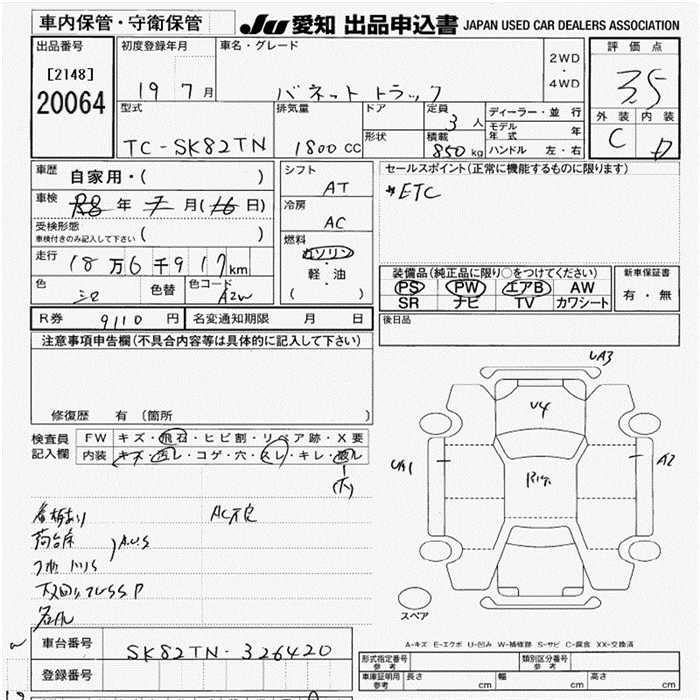 車内保管・守衛保管
JU 愛知 出品申込書 JAPAN USED CAR DEALERS ASSOCIATION
出品番号
[2148]
20064
初度登録年月
19 7 月
車名・グレード
バネット トラック
2WD
・
4WD
評価点
3.5
外装 内装
C D
型式
TC-SK82TN
排気量
1800 CC
ドア
形状
定員
3 人
積載
850 kg
ディーラー・並行
モデル年式 年
ハンドル 左・右
車歴
自家用・( )
車検 R8 年 7 月(16 日)
受検形態
車検付きのみ記入して下さい ( )
走行 18 万 6 千 917 km
色 シロ 色替 色コード A2W
シフト
AT
冷房
AC
燃料
ガソリン
・
軽・油
( )
セールスポイント(正常に機能するものに限ります)
*ETC
装備品(純正品に限り○をつけてください)
PS PW エアB AW
SR ナビ TV カワシート
新車保証書
有・無
R券 9110 円 名変通知期限 月 日
後日品
注意事項申告欄(不具合内容等は具体的に記入して下さい)
修復歴 有 (箇所 )
検査員記入欄
FW キズ・飛石・ヒビ割・リペア跡・X要
内装 キズ・汚レ・コゲ・穴・スレ・キレ・破レ
AC不良
荷台 A.U.S
UA3
U4
UA1
A2
スペア
A-キズ E-エクボ U-凹み W-補修跡 S-サビ C-腐食 XX-交換済
車台番号 SK82TN-326420
登録番号
形式指定番号 参考 類別区分番号 参考
車庫証明用 参考 長さ cm 幅 cm 高さ cm